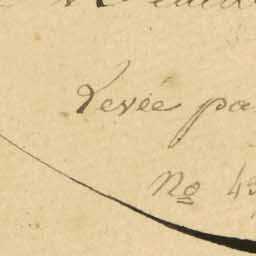 Levée pa
No 43